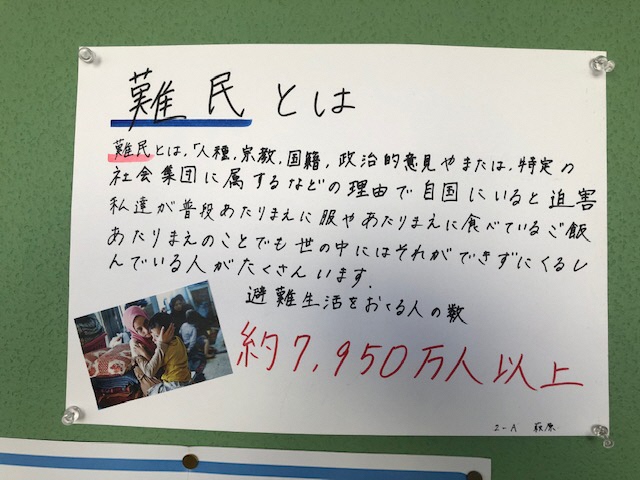 難民とは
難民とは、「人種、宗教、国籍、政治的意見やまたは、特定の
社会集団に属するなどの理由で自国にいると迫害
私達が普段あたりまえに服やあたりまえに食べているご飯
あたりまえのことでも世の中にはそれができずにくるし
んでいる人がたくさんいます.
避難生活をおくる人の数
約7,950万人以上
2-A 萩原